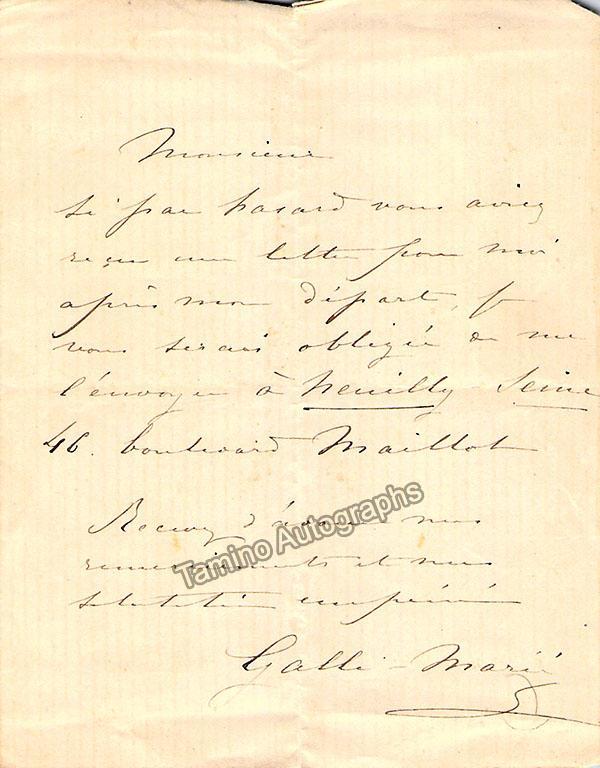 Monsieur
Si par hasard vous aviez
reçu une lettre pour moi
après mon départ, je
vous serais obligée de me
l'envoyer à Neuilly-Seine
46. boulevard Maillot
Recevez d'avance mes
remerciements et mes
salutations empressées
Galli-Marié
Tamino Autographs